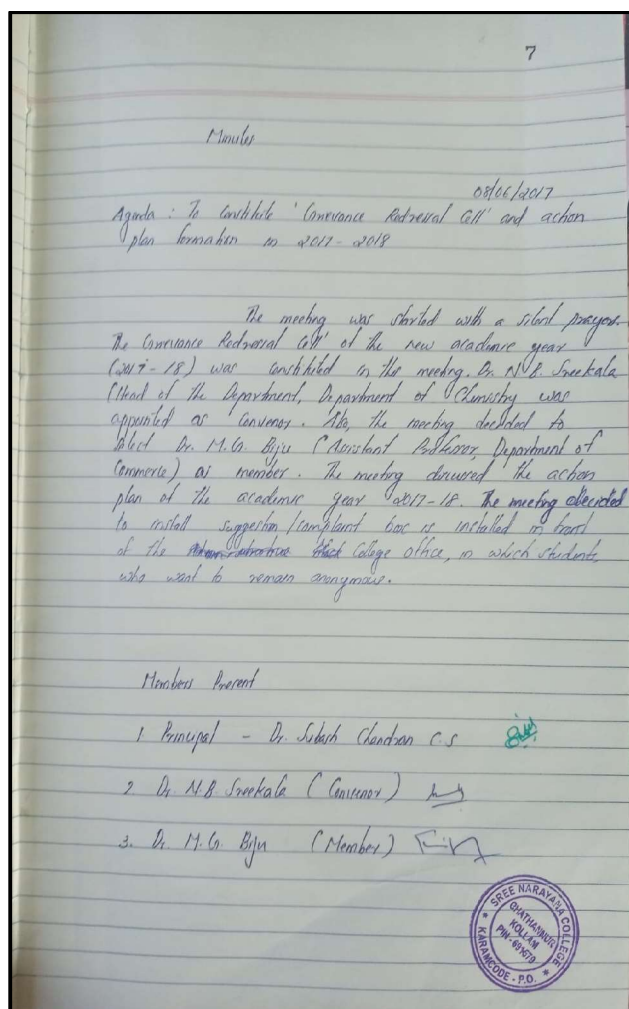 7
Minutes
08/06/2017
Agenda : To constitute 'Grievance Redressal Cell' and action
plan formation in 2017-2018
The meeting was started with a silent prayer.
The Grievance Redressal Cell' of the new academic year
(2017-18) was constituted in this meeting. Dr. N.B. Sreekala
(Head of the Department, Department of Chemistry was
appointed as Convenor. Also, the meeting decided to
select Dr. M.G. Biju (Assistant Professor, Department of
Commerce) as member. The meeting discussed the action
plan of the academic year 2017-18. The meeting decided
to install suggestion/complaint box is installed in front
of the College office, in which students,
who want to remain anonymous.
Members Present
1. Principal - Dr. Subash Chandran C.S
2. Dr. N.B. Sreekala (Convenor)
3. Dr. M.G. Biju (Member)
SREE NARAYANA COLLEGE
CHATHANNUR
KOLLAM
PIN-691579
KARAMCODE - P.O.